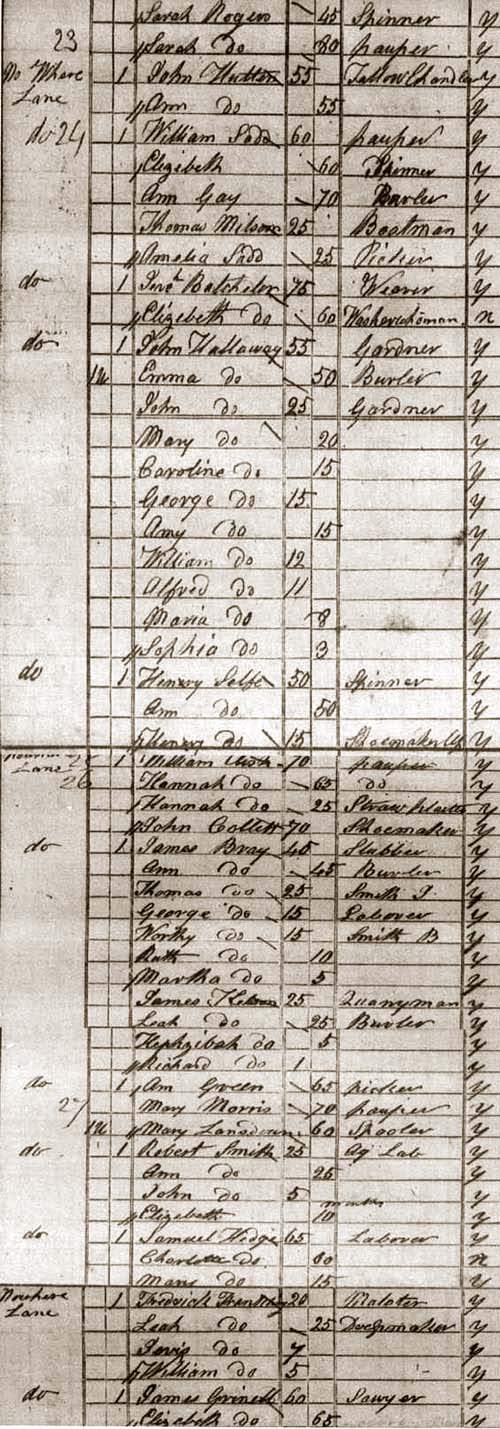 Sarah Rogers 45 Spinner y
23 Sarah do 80 pauper y
No Where Lane 1 John Hutton 55 Tallow Chandler y
Ann do 55 y
do 24 1 William Sadd 60 pauper y
Elizabeth 60 Spinner y
Ann Gay 70 Burler y
Thomas Milsom 25 Boatman y
Amelia Sadd 25 Picker y
do 1 Batchelor 75 Weaver y
Elizabeth do 60 Washerwoman n
do 1 John Hallaway 55 Gardner y
1u Emma do 50 Burler y
John do 25 Gardner y
Mary do 20 y
Caroline do 15 y
George do 15 y
Amy do 15 y
William do 12 y
Alfred do 11 y
Maria do 8 y
Sophia do 3 y
do 1 Henry Selfe 50 Spinner y
Ann do 50 y
Henry do 15 Shoemaker y
Lane 1 William 70 pauper y
26 Hannah do 65 do y
Hannah do 25 Straw y
John Collett 70 Shoemaker y
do 1 James Bray 45 Slubber y
Ann do 45 Burler y
Thomas do 25 Smith J y
George do 15 Labover y
Worthy do 15 Smith B y
Ruth do 10 y
Martha do 5 y
James 25 Quarryman y
Leah do 25 Burler y
Hephzibah do 5 y
Richard do 1 y
do 1 Ann Green 65 picker y
27 Mary Morris 70 pauper y
1u Mary Lansdown 60 Spooler y
do 1 Robert Smith 25 Ag Lab y
Ann do 25 y
John do 5 y
Elizabeth 10 months y
do 1 Samuel Hedge 65 Labover y
Charlotte do 60 n
Mary do 15 y
Nowhere Lane 1 Fredrick 20 y
Leah do 25 y
do 7 y
William do 5 y
do 1 James Grinell 60 Sawyer y
Elizabeth do 65 y